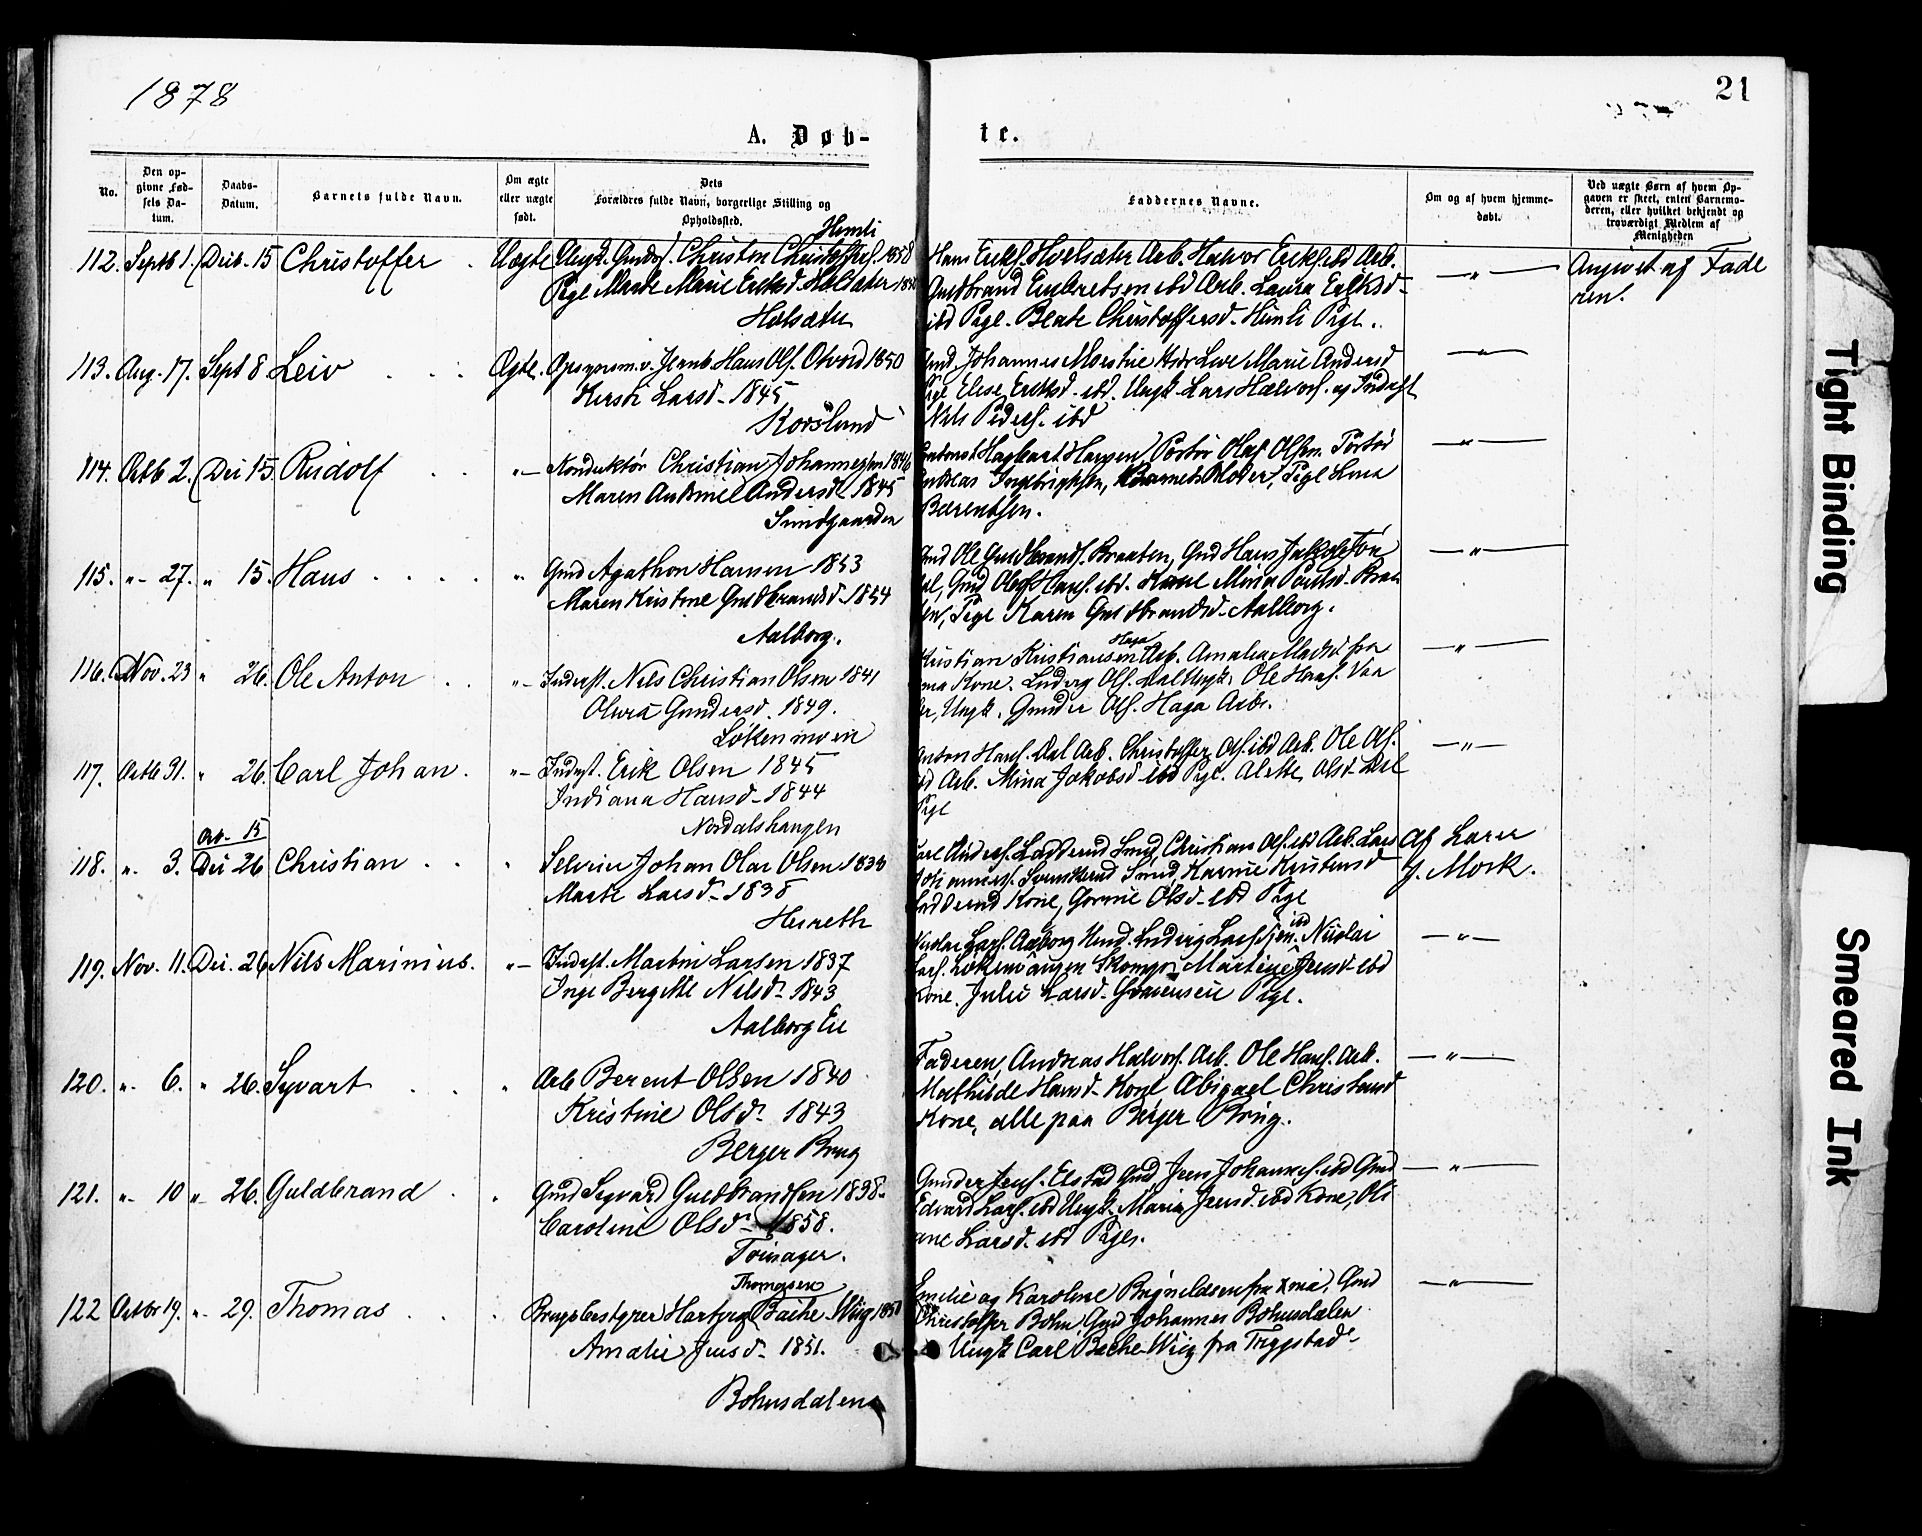 1878
21
A. Døb-
te.
No.
Den op-
givne Fød-
sels Da-
tum.
Daabs-
Datum.
Barnets fulde Navn.
Om ægte
eller uægte
født.
Dets
Forældres fulde Navn, borgerlige Stilling og
Opholdssted.
Faddernes Navne.
Om og af hvem hjemme-
døbt.
Ved uægte Børn af hvem Op-
gaven er skeet, enten Barnemo-
deren, eller hvilket bekjendt og
troværdigt Medlem af
Menigheden
Himli
112. Septb 1. Decb. 15 Christoffer Uægte Ungk. Christen Christoffers. 1858
Pige Marte Marie Eriksd.
Holsæter
Hans Eriks. Holsæter Arb. Halvor Eriks. ibd Arb.
Guldbrand Enbretsen ibd Arb. Laura Eriksd-
ibd Pige. Beate Christoffersd. Himli Pige.
— " —
Angivet af Fade
ren.
113. Aug. 17. Sept 8 Leiv Ægte. Opsynsm. v. Jernb. Hans Ols. 1850
Kirsti Larsd- 1845
Korslund
Johannes Marie Andersd
Pige Elise Eriksd. ibd. Ungk. Lars Halvors. og Inderst
Nils Peders. ibd
— " —
114. Octb 2. Dec 15. Rudolf " — Konduktør Christian Johannessen 1846
Maren Andersd- 1845
Sundgaarden
Hagbart Hansen Portør Olaf Olsen. Portør
Andreas Ingebrigtsen, Barnets Moder, Pige Lina
Berentsen.
— " —
115. " - 27. " 15. Hans " Gmd Agathon Hansen 1853
Maren Kristine Guldbrandsd. 1854
Aalborg.
Gmd Ole Guldbrands. Braaten, Gmd Hans
Gmd Hans. ibd. Kone Mina Braa
ten, Pige Karen Guldbrandsd. Aalborg.
— " —
116. Nov. 23 " 26. Ole Anton " — Inderst. Nils Christian Olsen 1841
Olivia Gundersd. 1849.
Løkenmoen
Haga
Kristian Kristiansen Arb. Amalia
Kone. Ludvig Ols. Dal Ungk. Ole Hans. Vaa
ler, Ungk. Gunder Ols. Haga Arb.
— " —
117. Octb 31. " 26. Carl Johan. " — Inderst. Erik Olsen 1845
Indiana Hansd- 1844
Nordalshaugen
Anton Hans. Dal Arb. Christoffer Ols. ibd Arb. Ole Ols.
ibd Arb. Mina Jakobsd- ibd Pige. Alette Olsd- Dal
Pige
— " —
15
118. " 3. Dec 26 Christian " Selveier Johan Olai Olsen
Marte Larsd- 1838
Hereth
Carl Anders. Ladderud Smed, Christian Ols. ibd Arb. Lars
Johanness. Smed, Karine Kristensd
Ladderud Kone, Gorine Olsd- ibd Pige
Af Lærer
J. Mork.
119. Nov. 11. Dec. 26 Nils Marinius. " — Inderst. Martin Larsen 1837
Inge Bergitte Nilsd- 1843
Aalborg Eie
Nicolai Lars. Aalborg ibd. Nicolai
Lars. Løkenvangen Skomgr. Martine Jensd- ibd
Kone. Julie Larsd. Pige.
— " —
120. " 6. " 26. Syvart " Arb Berent Olsen 1840
Kristine Olsd- 1843
Berger Brug
Faderen, Andreas Halvors. Arb. Ole Hans. Arb.
Mathilde Hansd- Kone Abigael Christiansd
Kone, alle paa Berger Brug.
— " —
121. " - 10 " 26. Guldbrand " Gmd Syvard Guldbrandsen 1838.
Caroline Olsd- 1858.
Toinager.
Gunder Jens. Elstad Gmd, Jens Johanness. ibd Gmd
Edvard Lars. ibd Ungk. Maria Jensd. ibd Kone, Oli
ane Larsd. ibd Pige.
— " —
122 Octbr 19. " - 29. Thomas " Brugsbestyrer Hartvig Bache-Wiig
Thomassen
Amalie Jensd- 1851.
Bohusdalen
Emilie og Karoline Brynildsen fra Xnia, Gmd
Christoffer Bohn Gmd Johannes Bohusdalen
Ungk Carl Bache-Wiig fra Trygstad
— " —
Tight Binding
Smeared Ink